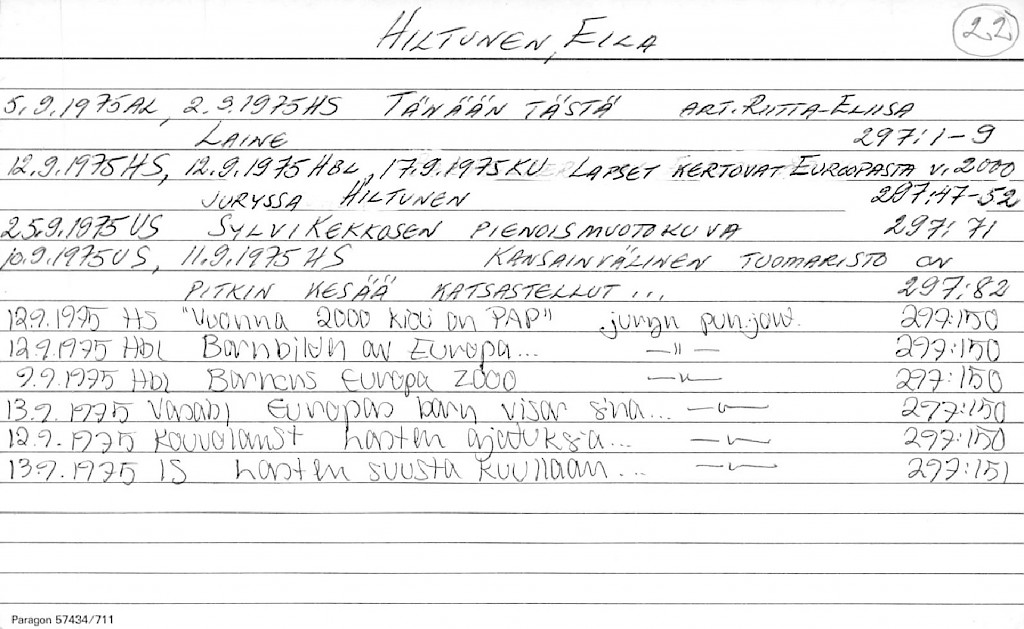 HILTUNEN, EILA
22
5.9.1975 AL, 2.9.1975 HS TÄNÄÄN TÄSTÄ ART. RIITTA-ELIISA
LAINE 297:1-9
12.9.1975 HS, 12.9.1975 HBL, 17.9.1975 KU LAPSET KERTOVAT EUROOPASTA V. 2000
JURYSSA HILTUNEN 297:47-52
25.9.1975 US SYLVI KEKKOSEN PIENOISMUOTOKUVA 297:71
10.9.1975 US, 11.9.1975 HS KANSAINVÄLINEN TUOMARISTO ON
PITKIN KESÄÄ KATSASTELLUT ... 297:82
12.9.1975 HS "Vuonna 2000 kieli on PAP" juryn puh.joht. 297:150
12.9.1975 Hbl Barnbilden av Europa... —"— 297:150
9.9.1975 Hbl Barnens Europa 2000 —"— 297:150
13.9.1975 Vasabl Europas barn visar sina... —"— 297:150
12.9.1975 Kouvolanst Lasten ajatuksia... —"— 297:150
13.9.1975 IS Lasten suusta kuullaan... —"— 297:151
Paragon 57434/711